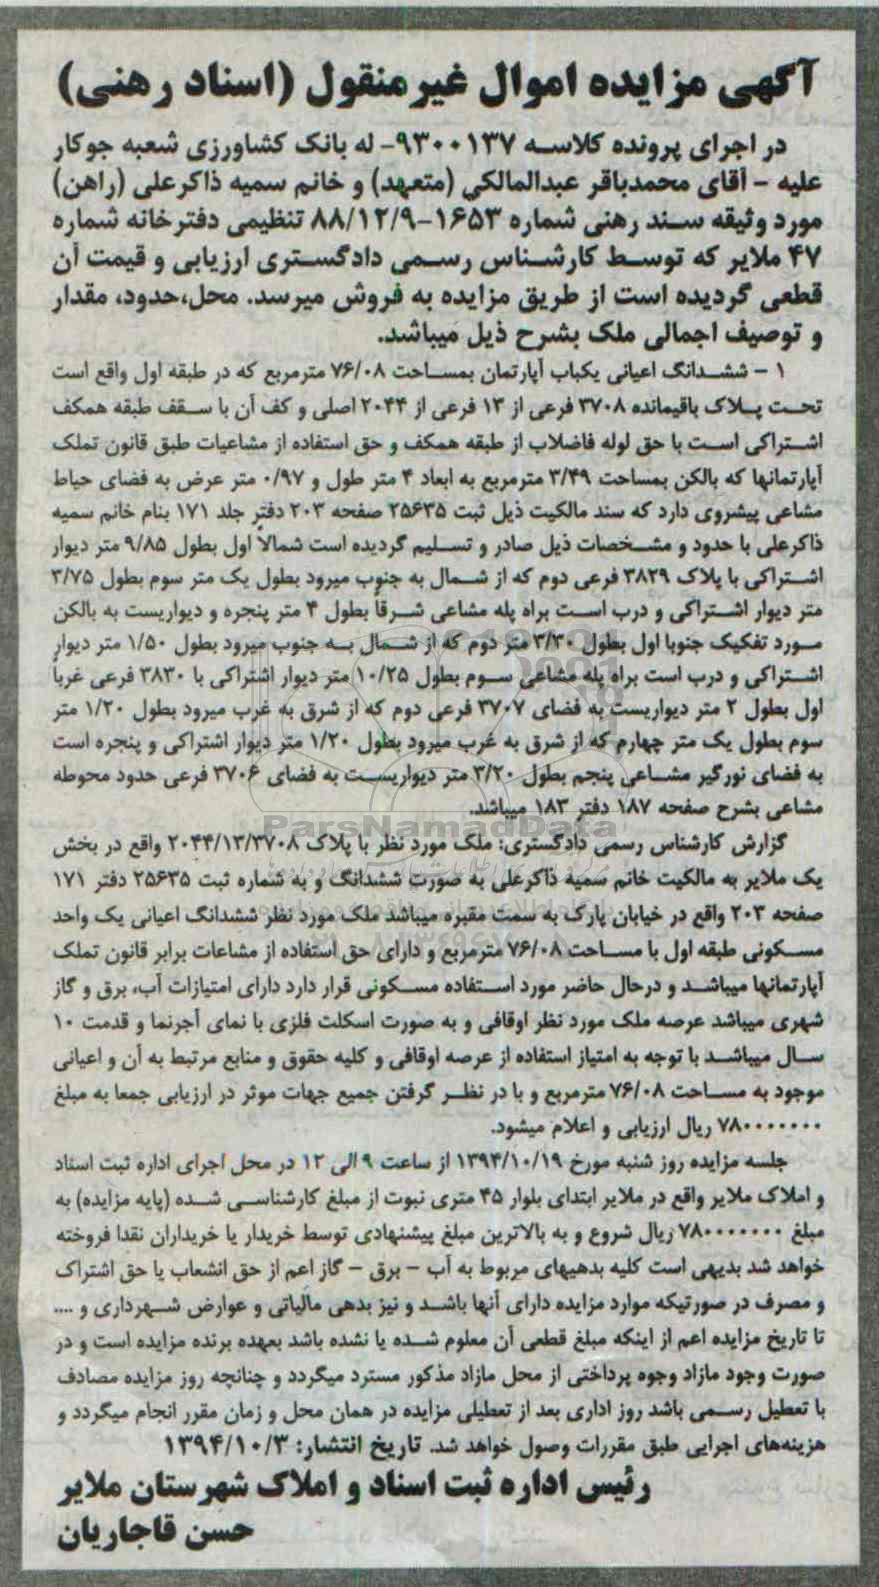 آگهی مزایده اموال غیرمنقول (اسناد رهنی)
در اجرای پرونده کلاسه ۹۳۰۰۱۳۷- له بانک کشاورزی شعبه جوکار
علیه - آقای محمدباقر عبدالمالکی (متعهد) و خانم سمیه ذاکرعلی (راهن)
مورد وثیقه سند رهنی شماره ۱۶۵۳-۸۸/۱۲/۹ تنظیمی دفترخانه شماره
۴۷ ملایر که توسط کارشناس رسمی دادگستری ارزیابی و قیمت آن
قطعی گردیده است از طریق مزایده به فروش میرسد. محل،حدود، مقدار
و توصیف اجمالی ملک بشرح ذیل میباشد.
۱ - ششدانگ اعیانی یکباب آپارتمان بمساحت ۷۶/۰۸ مترمربع که در طبقه اول واقع است
تحت پلاک باقیمانده ۳۷۰۸ فرعی از ۱۳ فرعی از ۲۰۴۴ اصلی و کف آن با سقف طبقه همکف
اشتراکی است با حق لوله فاضلاب از طبقه همکف و حق استفاده از مشاعیات طبق قانون تملک
آپارتمانها که بالکن بمساحت ۳/۴۹ مترمربع به ابعاد ۴ متر طول و ۰/۹۷ متر عرض به فضای حیاط
مشاعی پیشروی دارد که سند مالکیت ذیل ثبت ۲۵۶۳۵ صفحه ۲۰۳ دفتر جلد ۱۷۱ بنام خانم سمیه
ذاکرعلی با حدود و مشخصات ذیل صادر و تسلیم گردیده است شمالاً اول بطول ۹/۸۵ متر دیوار
اشتراکی با پلاک ۳۸۲۹ فرعی دوم که از شمال به جنوب میرود بطول یک متر سوم بطول ۳/۷۵
متر دیوار اشتراکی و درب است براه پله مشاعی شرقاً بطول ۴ متر پنجره و دیواریست به بالکن
مورد تفکیک جنوبا اول بطول ۳/۳۰ متر دوم که از شمال به جنوب میرود بطول ۱/۵۰ متر دیوار
اشتراکی و درب است براه پله مشاعی سوم بطول ۱۰/۲۵ متر دیوار اشتراکی با ۳۸۳۰ فرعی غرباً
اول بطول ۲ متر دیواریست به فضای ۳۷۰۷ فرعی دوم که از شرق به غرب میرود بطول ۱/۲۰ متر
سوم بطول یک متر چهارم که از شرق به غرب میرود بطول ۱/۲۰ متر دیوار اشتراکی و پنجره است
به فضای نورگیر مشاعی پنجم بطول ۳/۲۰ متر دیواریست به فضای ۳۷۰۶ فرعی حدود محوطه
مشاعی بشرح صفحه ۱۸۷ دفتر ۱۸۳ میباشد.
ParsNamadData
گزارش کارشناس رسمی دادگستری: ملک مورد نظر با پلاک ۲۰۴۴/۱۳/۳۷۰۸ واقع در بخش
یک ملایر به مالکیت خانم سمیه ذاکرعلی به صورت ششدانگ و به شماره ثبت ۲۵۶۳۵ دفتر ۱۷۱
صفحه ۲۰۳ واقع در خیابان پارک به سمت مقبره میباشد ملک مورد نظر ششدانگ اعیانی یک واحد
مسکونی طبقه اول با مساحت ۷۶/۰۸ مترمربع و دارای حق استفاده از مشاعات برابر قانون تملک
آپارتمانها میباشد و درحال حاضر مورد استفاده مسکونی قرار دارد دارای امتیازات آب، برق و گاز
شهری میباشد عرصه ملک مورد نظر اوقافی و به صورت اسکلت فلزی با نمای آجرنما و قدمت ۱۰
سال میباشد با توجه به امتیاز استفاده از عرصه اوقافی و کلیه حقوق و منابع مرتبط به آن و اعیانی
موجود به مساحت ۷۶/۰۸ مترمربع و با در نظر گرفتن جمیع جهات موثر در ارزیابی جمعا به مبلغ
۷۸۰۰۰۰۰۰۰ ریال ارزیابی و اعلام میشود.
جلسه مزایده روز شنبه مورخ ۱۳۹۴/۱۰/۱۹ از ساعت ۹ الی ۱۲ در محل اجرای اداره ثبت اسناد
و املاک ملایر واقع در ملایر ابتدای بلوار ۴۵ متری نبوت از مبلغ کارشناسی شده (پایه مزایده) به
مبلغ ۷۸۰۰۰۰۰۰۰ ریال شروع و به بالاترین مبلغ پیشنهادی توسط خریدار یا خریداران نقدا فروخته
خواهد شد بدیهی است کلیه بدهیهای مربوط به آب - برق - گاز اعم از حق انشعاب یا حق اشتراک
و مصرف در صورتیکه موارد مزایده دارای آنها باشد و نیز بدهی مالیاتی و عوارض شهرداری و ....
تا تاریخ مزایده اعم از اینکه مبلغ قطعی آن معلوم شده یا نشده باشد بعهده برنده مزایده است و در
صورت وجود مازاد وجوه پرداختی از محل مازاد مذکور مسترد میگردد و چنانچه روز مزایده مصادف
با تعطیل رسمی باشد روز اداری بعد از تعطیلی مزایده در همان محل و زمان مقرر انجام میگردد و
هزینه‌های اجرایی طبق مقررات وصول خواهد شد. تاریخ انتشار: ۱۳۹۴/۱۰/۳
رئیس اداره ثبت اسناد و املاک شهرستان ملایر
حسن قاجاریان